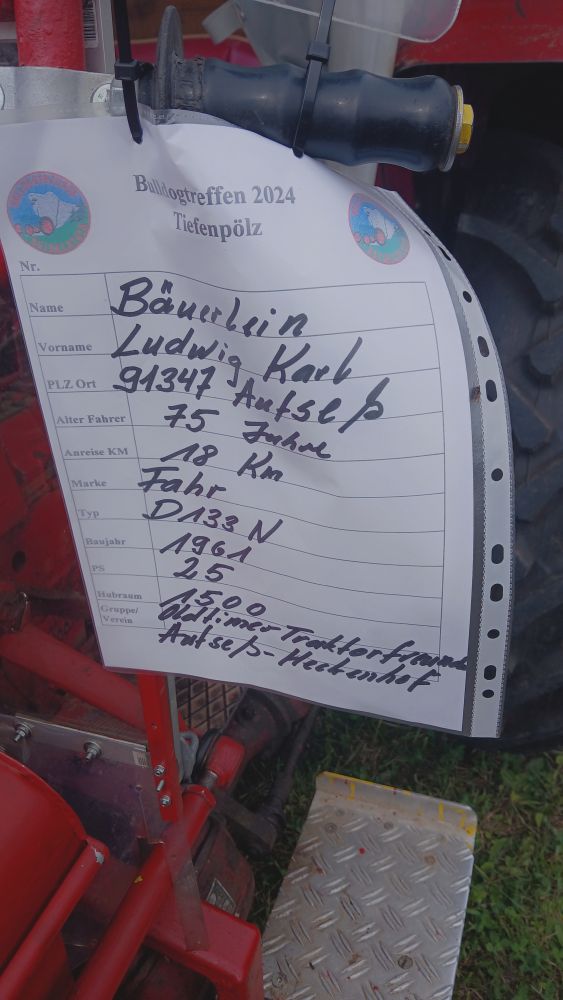 Bulldogtreffen 2024
Tiefenpölz
Nr.
Name Bäuerlein
Vorname Ludwig Karl
PLZ Ort 91347 Aufseß
Alter Fahrer 75 Jahre
Anreise KM 18 Km
Marke Fahr
Typ D133 N
Baujahr 1961
PS 25
Hubraum 1500
Gruppe/ Oldtimer Traktorfreunde
Verein Aufseß-Heckenhof